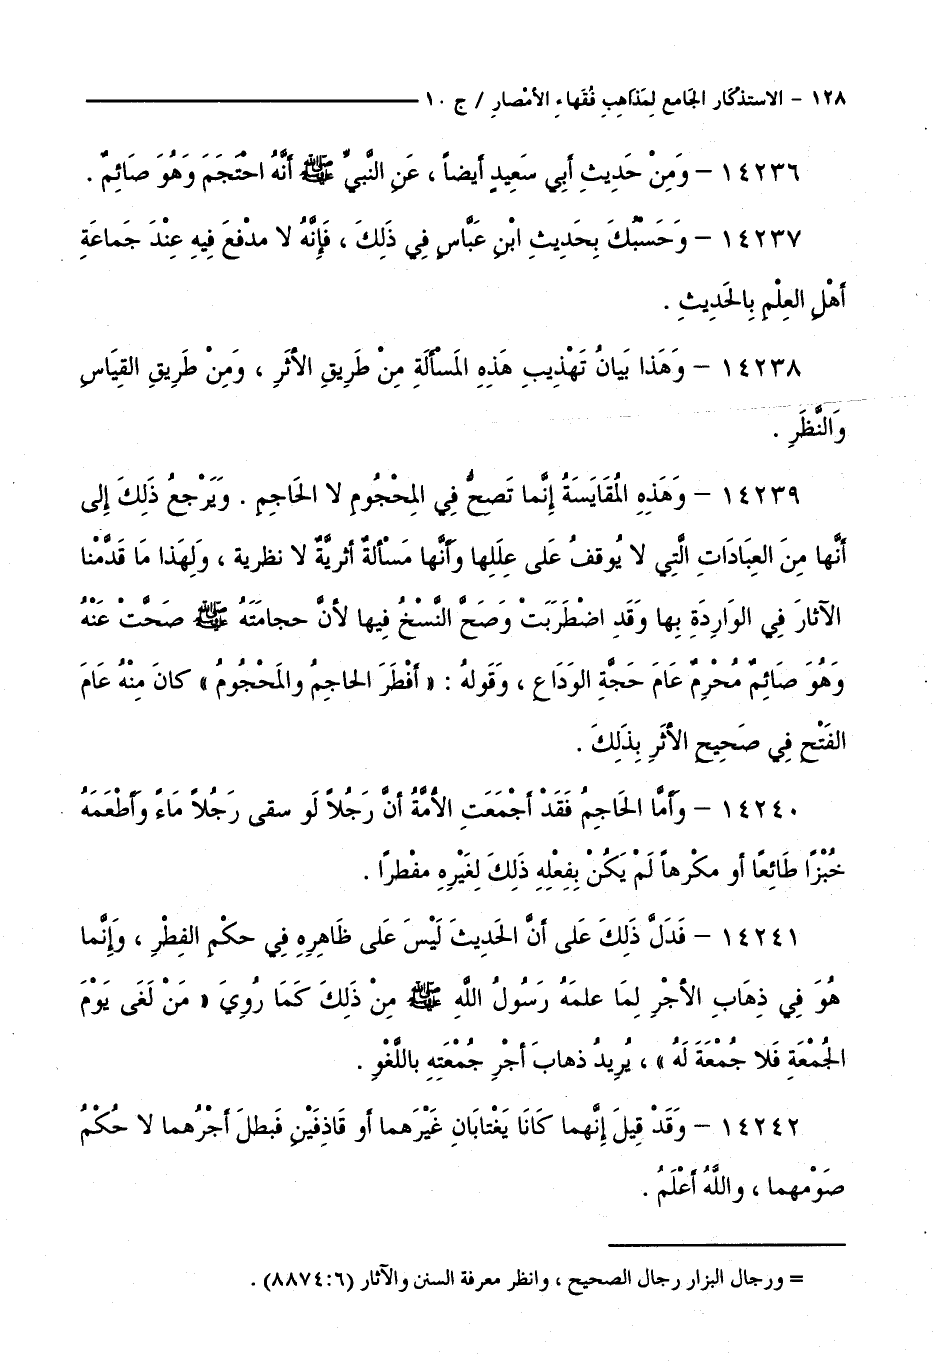 ١٢٨ - الاستذْكَار الجَامع لِمَذاهِبِ فُقَهاءِ الأمْصارِ / ج ١٠
١٤٢٣٦ - وَمِنْ حَدِيثِ أبِي سَعِيدٍ أيضاً ، عَنِ النَّبيِّ ﷺ أنَّهُ احْتَجَمَ وَهُوَ صَائِمٌ .
١٤٢٣٧ - وَحَسْبُكَ بِحَدِيثِ ابْنِ عَبَّاسٍ فِي ذَلِكَ ، فَإِنَّهُ لا مدْفعَ فِيهِ عِنْدَ جَماعَةِ
أهْلِ العِلْمِ بِالحَدِيثِ .
١٤٢٣٨ - وَهَذا بَيانُ تَهْذِيبِ هَذِهِ المَسْألَةِ مِنْ طَرِيقِ الأثَرِ ، وَمِنْ طَرِيقِ القِيَاسِ
وَالنَّظَرِ .
١٤٢٣٩ - وَهَذِهِ المُقَايَسَةُ إِنَّما تَصِحُّ فِي المِحْجُومِ لا الحَاجِمِ . وَيَرْجعُ ذَلِكَ إِلى
أنَّها مِنَ العِبَادَاتِ الَّتِي لا يُوقفُ عَلى عِلَلِها وَأنَّها مَسْألةٌ أثريَّةٌ لا نظرية ، وَلِهَذا مَا قَدَّمْنا
الآثارَ فِي الوَارِدَةِ بِها وَقَدِ اضْطَرَبَتْ وَصَحَّ النَّسْخُ فِيها لأنَّ حجامَتَهُ ﷺ صَحَّتْ عَنْهُ
وَهُوَ صَائِمٌ مُحْرِمٌ عَامَ حَجَّةِ الوَدَاعِ ، وَقَولهُ : « أفْطَرَ الحاجِمُ والمَحْجُومُ » كانَ مِنْهُ عَامَ
الفَتْحِ فِي صَحِيحِ الأثَرِ بِذَلِكَ .
١٤٢٤٠ - وَأمَّا الحَاجِمُ فَقَدْ أجْمَعَتِ الأُمَّةُ أنَّ رَجُلاً لَو سقى رَجُلاً مَاءً وَأطْعَمَهُ
خُبْزًا طَائِعًا أو مكْرهاً لَمْ يَكُنْ بِفِعْلِهِ ذَلِكَ لِغَيْرِهِ مفْطرًا .
١٤٢٤١ - فَدَلَّ ذَلِكَ عَلى أنَّ الحَدِيثَ لَيْسَ عَلى ظَاهِرِهِ فِي حكْمِ الفِطْرِ ، وَإِنَّما
هُوَ فِي ذِهَابِ الأجْرِ لِمَا علمَهُ رَسُولُ اللَّهِ ﷺ مِنْ ذَلِكَ كَمَا رُوِيَ « مَنْ لَغَى يَوْمَ
الجُمْعَةِ فَلا جُمْعَةَ لَهُ » ، يُرِيدُ ذهابَ أجْرِ جُمْعَتِهِ باللَّغْوِ .
١٤٢٤٢ - وَقَدْ قِيلَ إِنَّهما كَانَا يَغْتابَانِ غَيْرَهما أو قَاذِفَيْنِ فَبطلَ أجْرُهما لا حُكْمُ
صَوْمِهما ، واللَّهُ أعْلَمُ .
= ورجال البزار رجال الصحيح ، وانظر معرفة السنن والآثار (٦:٨٨٧٤) .